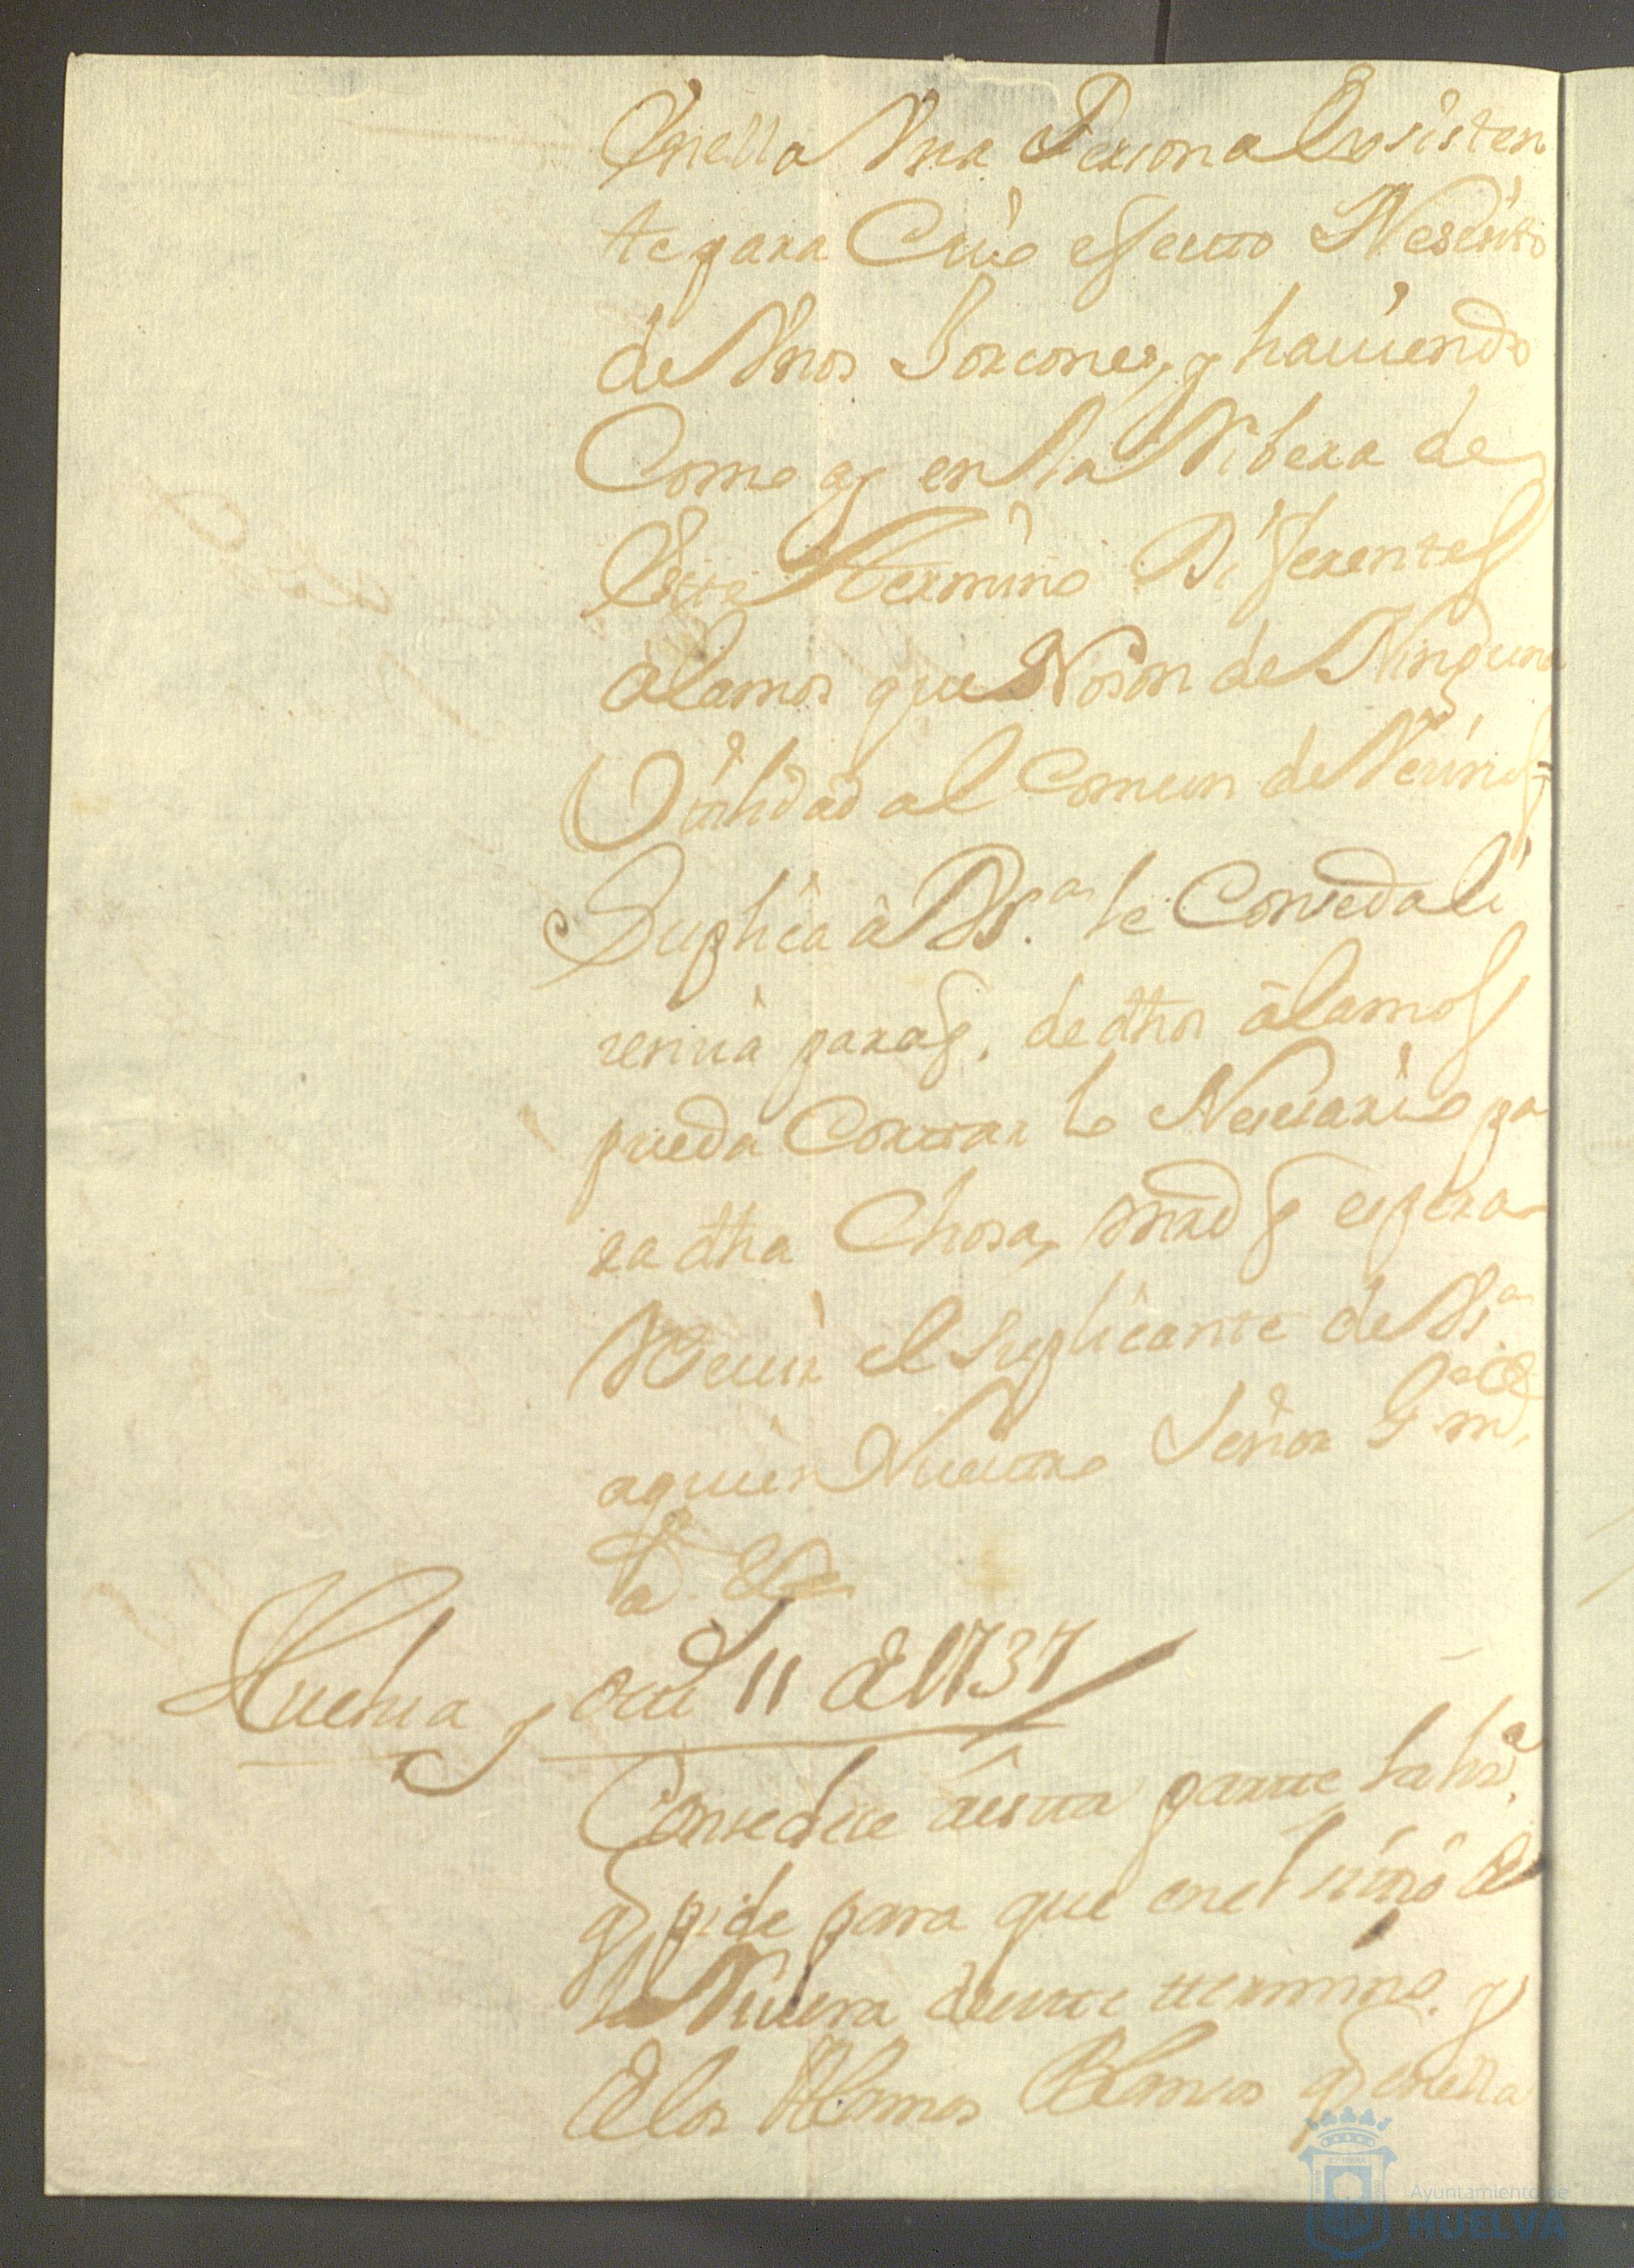 Enella Vna Persona Ensisten
te para Cuio efecto Nesesito
de Vnos Horcones, y haviendo
Como ay en la Ribera de
Este termino Diferentes
alamos que Noson de Ninguna
Vtilidad al Comun de Vecinos=
Suplica à VSª. le Conseda li
zencia paraq. de dhos àlamos
pueda Cortar lo Nesesario pa
ra dha Chosa, mrd q espera
Recivir el Suplicante de VSª
aquien Nuestro Señor
aˢ &ª
Huelva y Octᵉ 11 de 1737
Consedese aesta parte la lizª.
q pide para que enel sitio de
la Rivera deeste termino y
de los Alamos Blancos q enella
Ayuntamiento de
HUELVA